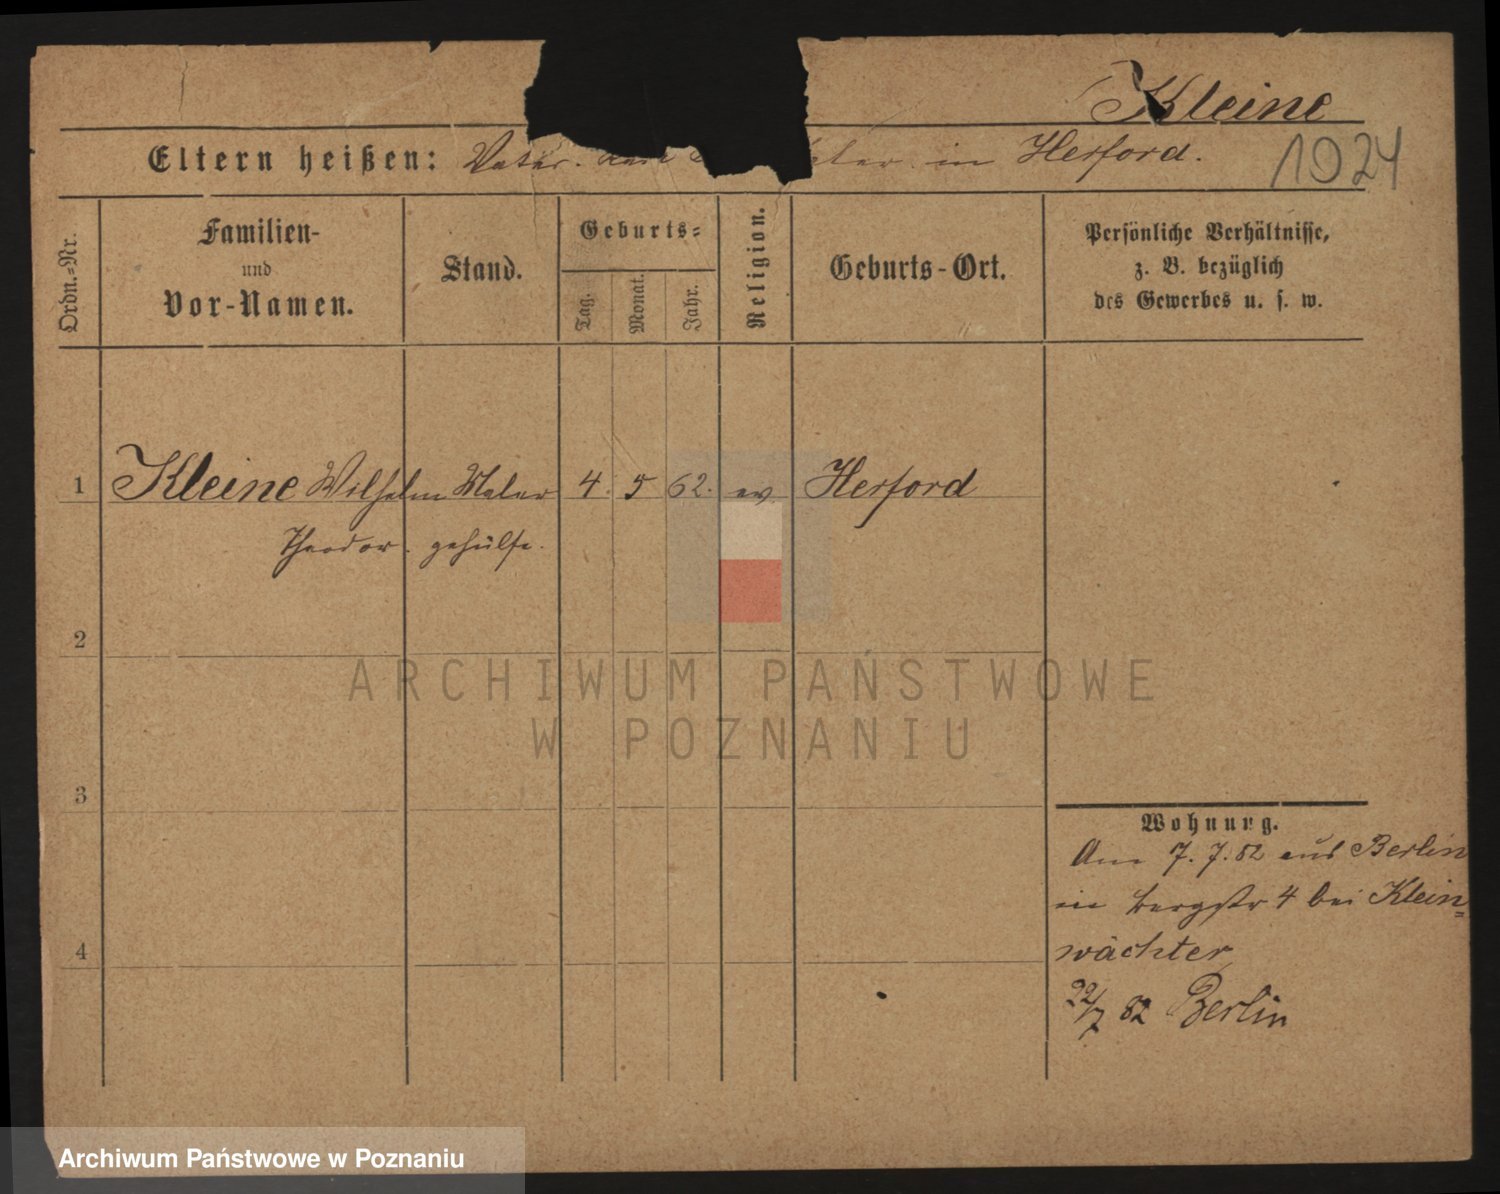 Kleine
Eltern heißen: Vater. in Herford.
1924
Ordn.-Nr.
Familien-
und
Vor-Namen.
Stand.
Geburts-
Tag.
Monat.
Jahr.
Religion.
Geburts-Ort.
Persönliche Verhältnisse,
z. B. bezüglich
des Gewerbes u. s. w.
1 Kleine Wilhelm Maler 4. 5 62. ev. Herford
Theodor. gehülfe.
2
3
4
ARCHIWUM PAŃSTWOWE
W POZNANIU
Wohnung.
Am 7. 7. 82 aus Berlin
in Bergstr 4 bei Klein=
wächter
22/7 82 Berlin
Archiwum Państwowe w Poznaniu